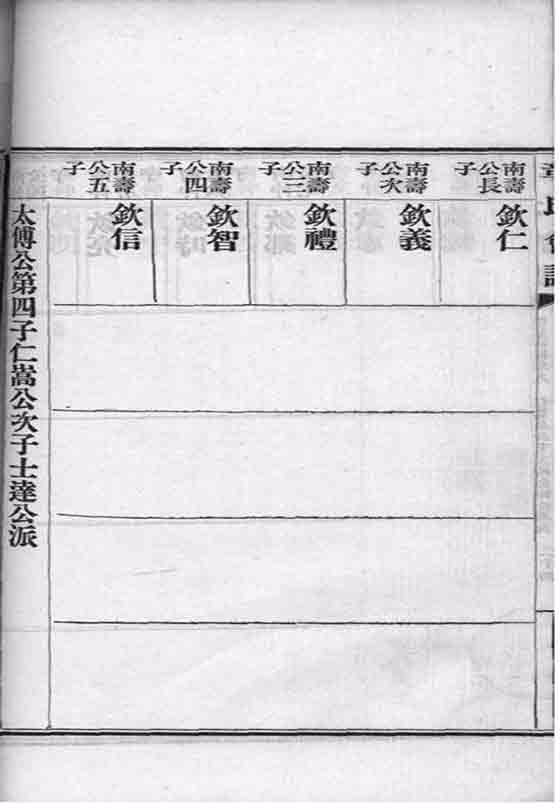 南壽公長子
欽仁
南壽公次子
欽義
南壽公三子
欽禮
南壽公四子
欽智
南壽公五子
欽信
太傅公第四子仁嵩公次子士達公派